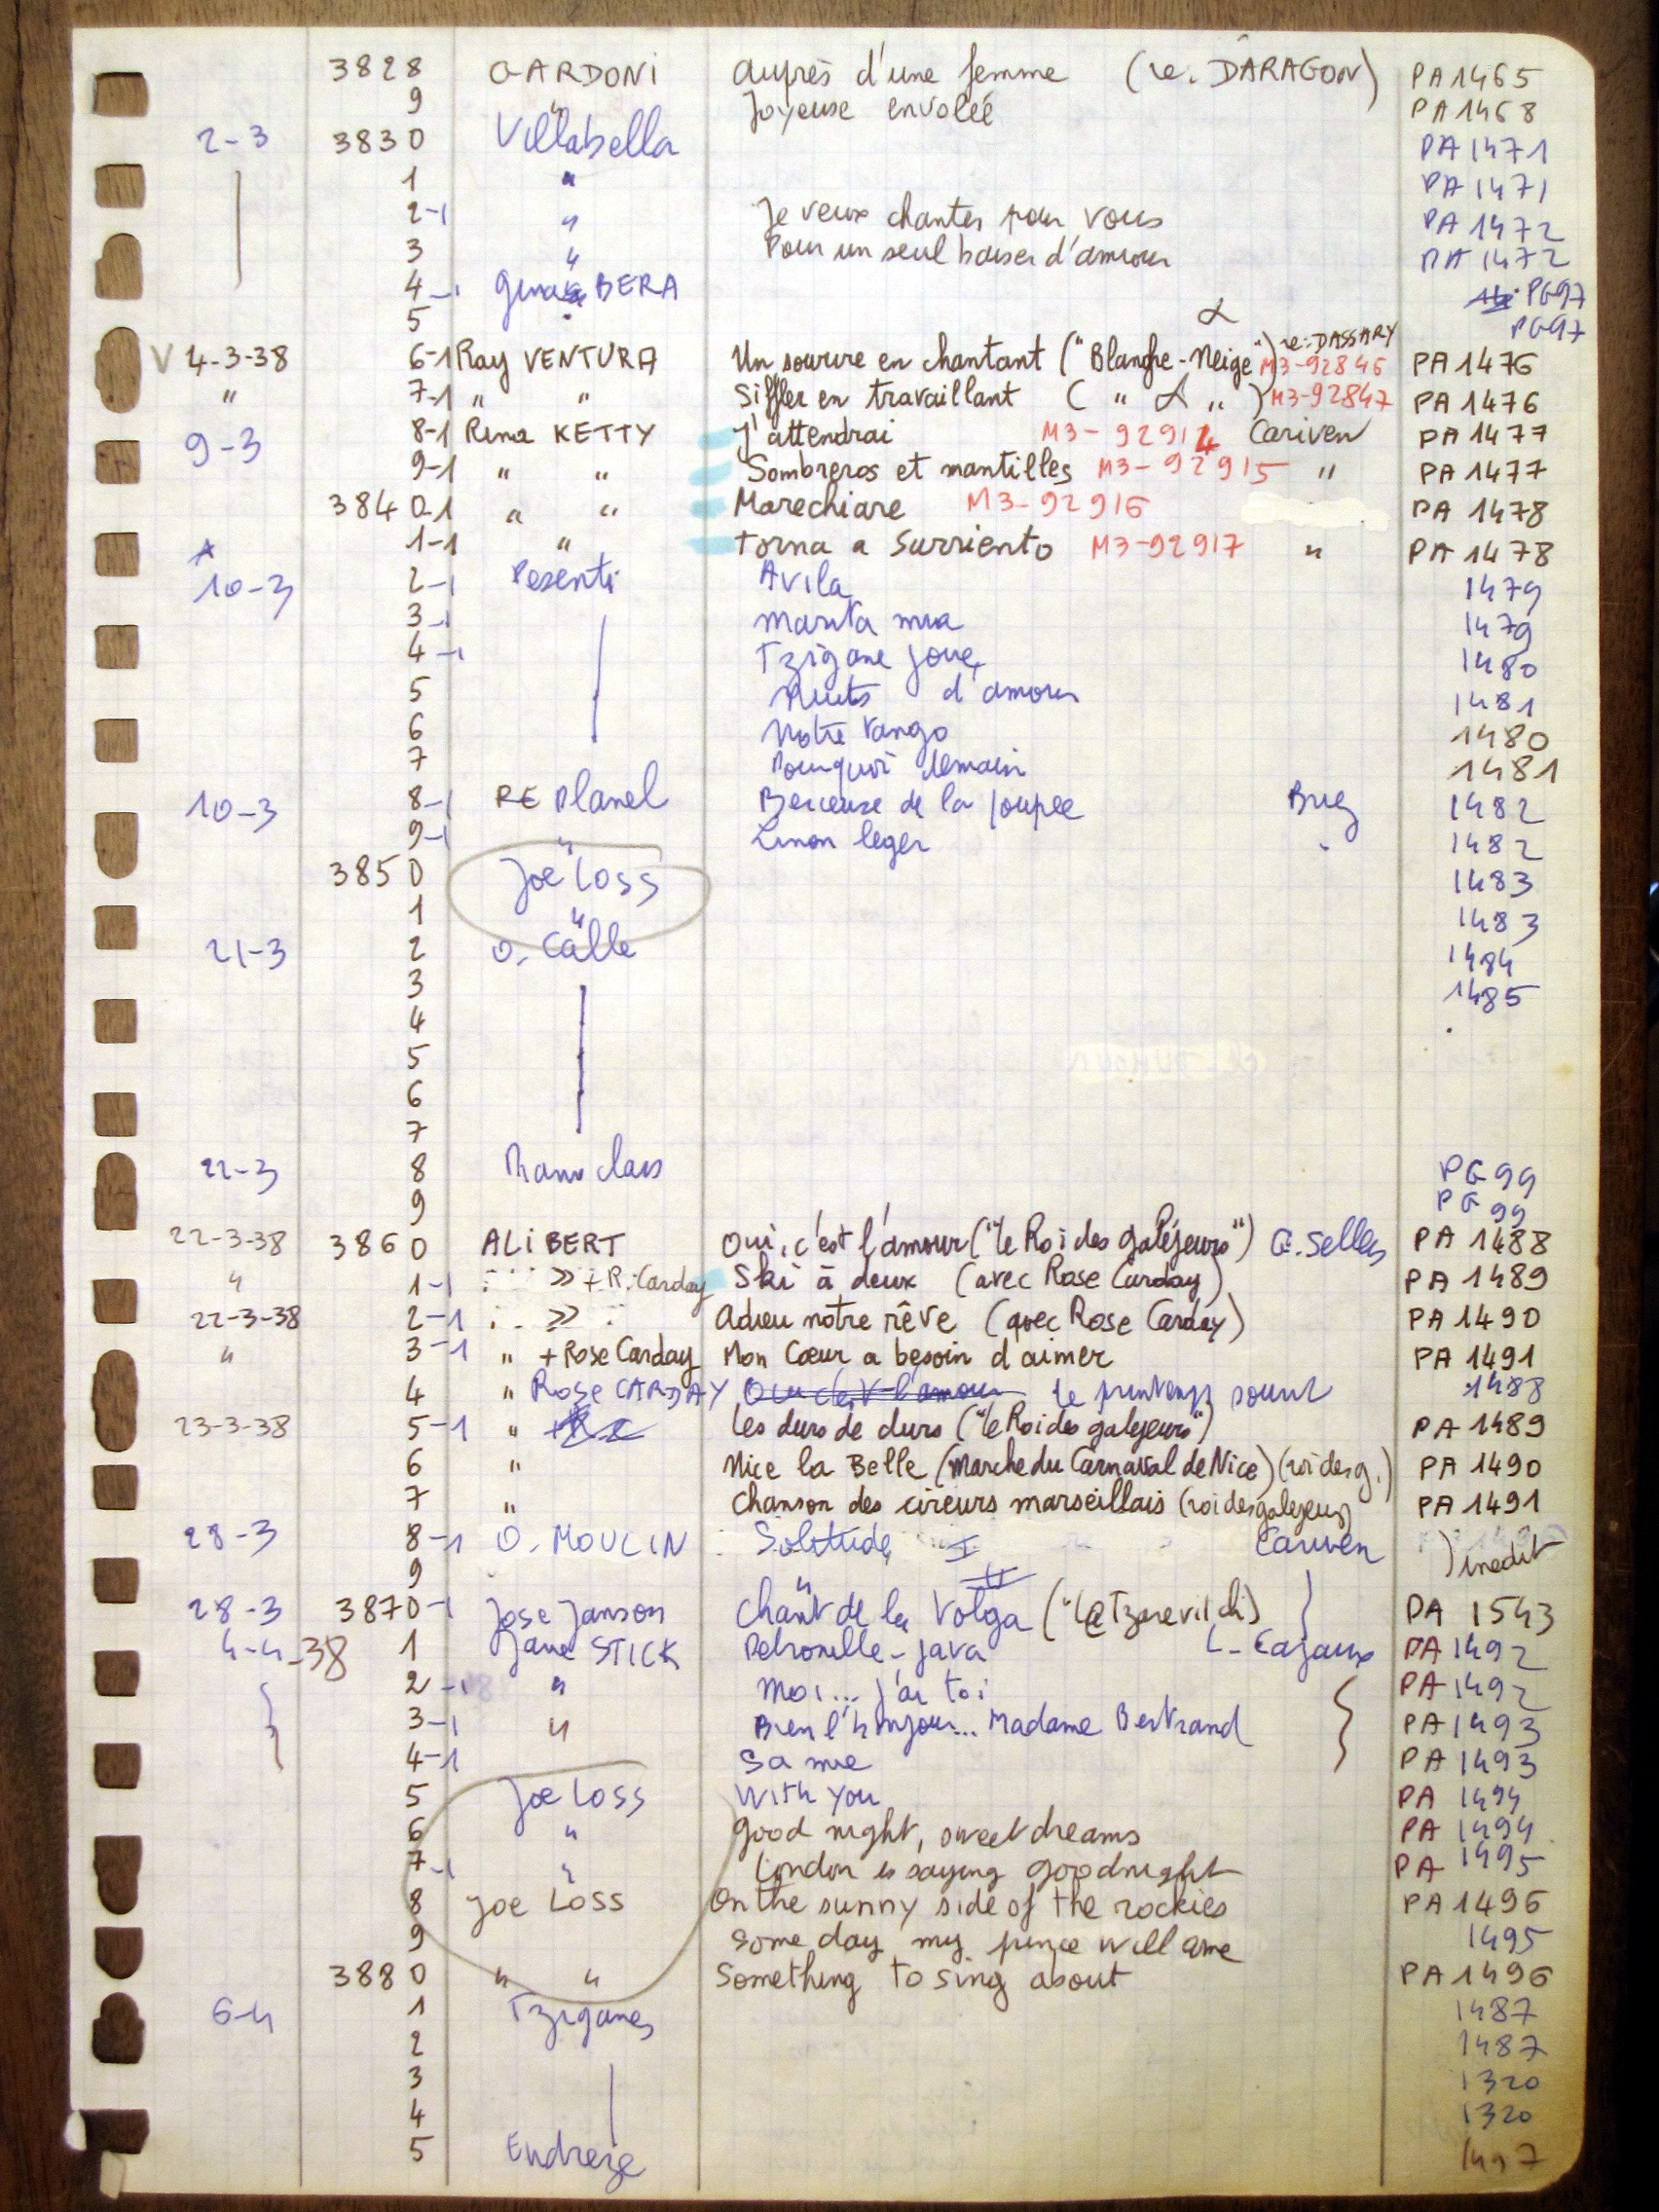 3828 GARDONI Auprès d'une femme (re. DARAGON) PA1465
9 " Joyeuse envolée PA1468
2-3 3830 Villabella PA 1471
1 " PA 1471
2-1 " Je veux chanter pour vous PA 1472
3 " Pour un seul baiser d'amour PA 1472
4-1 BERA PG97
5 " PG97
α re: DASSARY
V 4-3-38 6-1 Ray VENTURA Un sourire en chantant ("Blanche-Neige") M3-92846 PA 1476
" 7-1 " " Siffler en travaillant ( " α " ) M3-92847 PA 1476
9-3 8-1 Rina KETTY J'attendrai M3-92914 Cariven PA 1477
9-1 " " Sombreros et mantilles M3-92915 " PA 1477
3840-1 " " Marechiare M3-92916 PA 1478
1-1 " Torna a Surriento M3-92917 " PA 1478
10-3 2-1 Pesenti Avila 1479
3-1 Marita mia 1479
4-1 Tzigane joue 1480
5 Nuits d'amour 1481
6 Notre tango 1480
7 Pourquoi demain 1481
10-3 8-1 RE Planel Berceuse de la poupée 1482
9-1 " Linon leger 1482
3850 Joe Loss 1483
1 " 1483
21-3 2 O. Calle 1484
3 1485
4
5
6
7
22-3 8 PG 99
9 PG 99
22-3-38 3860 ALIBERT Oui, c'est l'amour ("le Roi des galéjeurs") G. Sellers PA 1488
" 1-1 » + R. Carday Ski à deux (avec Rose Carday) PA 1489
22-3-38 2-1 » Adieu notre rêve (avec Rose Carday) PA 1490
" 3-1 " + Rose Carday Mon Cœur a besoin d'aimer PA 1491
4 " Rose CARDAY le printemps sourit 1488
23-3-38 5-1 " Les durs de durs ("le Roi des galejeurs") PA 1489
6 " Nice la Belle (Marche du Carnaval de Nice) (roi des g.) PA 1490
7 " Chanson des cireurs marseillais (roi des galejeurs) PA 1491
28-3 8-1 O. MOULIN Solitude I Cariven ) inedit
9 " II
28-3 3870-1 Jose Janson Chant de la Volga ("Le Tzarevitch) PA 1543
4-4-38 1 Jane STICK Petronille - java L. Cazaux PA 1492
2-1 " Moi... j'ai toi PA 1492
3-1 " Bien l'bonjour... Madame Bertrand PA 1493
4-1 Sa vie PA 1493
5 Joe Loss With you PA 1494
6 " Good night, sweet dreams PA 1494
7-1 " London is saying goodnight PA 1495
8 Joe Loss On the sunny side of the rockies PA 1496
9 Some day my prince will come 1495
3880 " " Something to sing about PA 1496
6-4 1 Tziganes 1487
2 1487
3 1320
4 1320
5 Endreze 1497